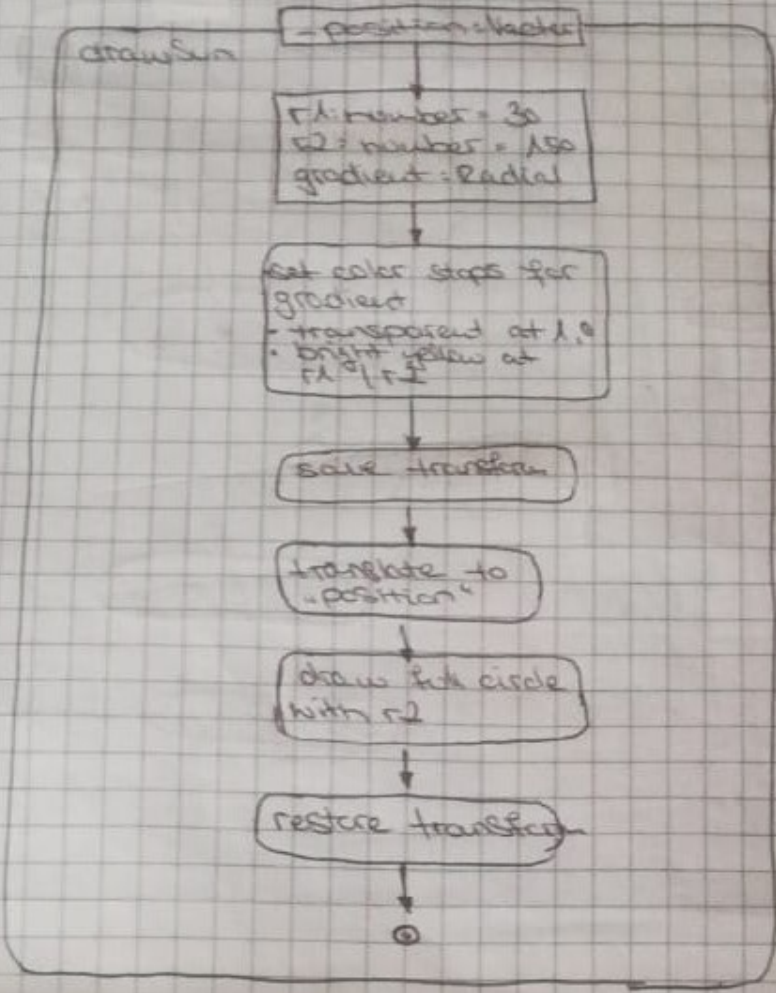 - position: Vector
drawSun
r1: number = 30
r2: number = 150
gradient: Radial
set color stops for
gradient
- transparent at 1.0
- bright yellow at
r1 / r2
save transform
translate to
„position“
draw full circle
with r2
restore transform